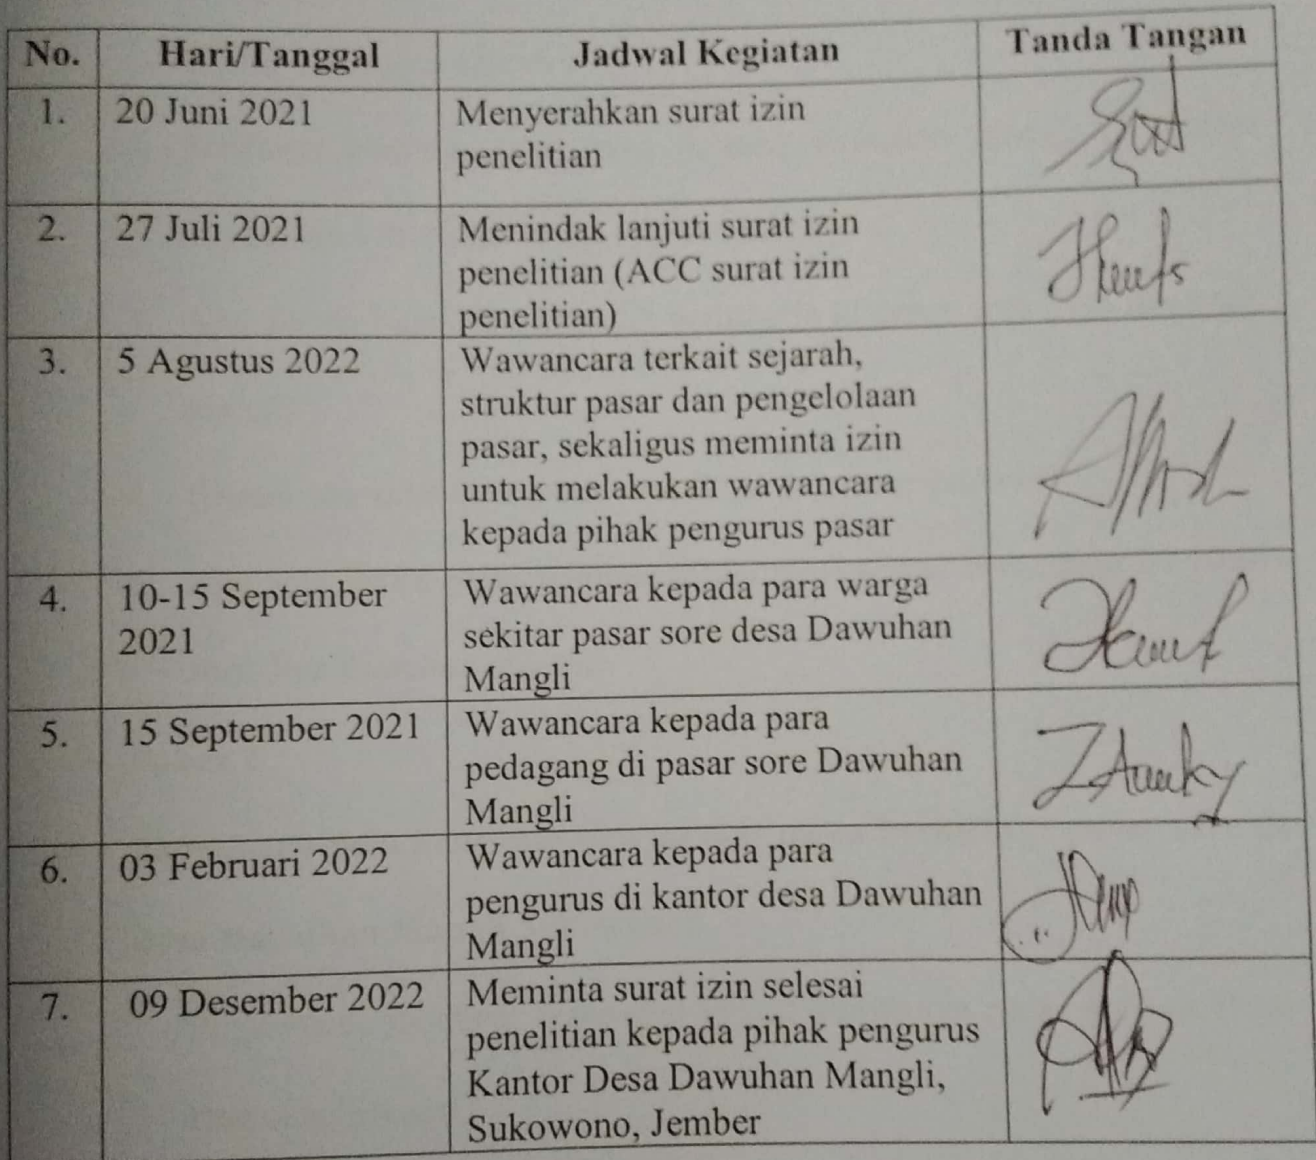 No. Hari/Tanggal Jadwal Kegiatan Tanda Tangan
1. 20 Juni 2021 Menyerahkan surat izin
penelitian
2. 27 Juli 2021 Menindak lanjuti surat izin
penelitian (ACC surat izin
penelitian)
3. 5 Agustus 2022 Wawancara terkait sejarah,
struktur pasar dan pengelolaan
pasar, sekaligus meminta izin
untuk melakukan wawancara
kepada pihak pengurus pasar
4. 10-15 September Wawancara kepada para warga
2021 sekitar pasar sore desa Dawuhan
Mangli
5. 15 September 2021 Wawancara kepada para
pedagang di pasar sore Dawuhan
Mangli
6. 03 Februari 2022 Wawancara kepada para
pengurus di kantor desa Dawuhan
Mangli
7. 09 Desember 2022 Meminta surat izin selesai
penelitian kepada pihak pengurus
Kantor Desa Dawuhan Mangli,
Sukowono, Jember